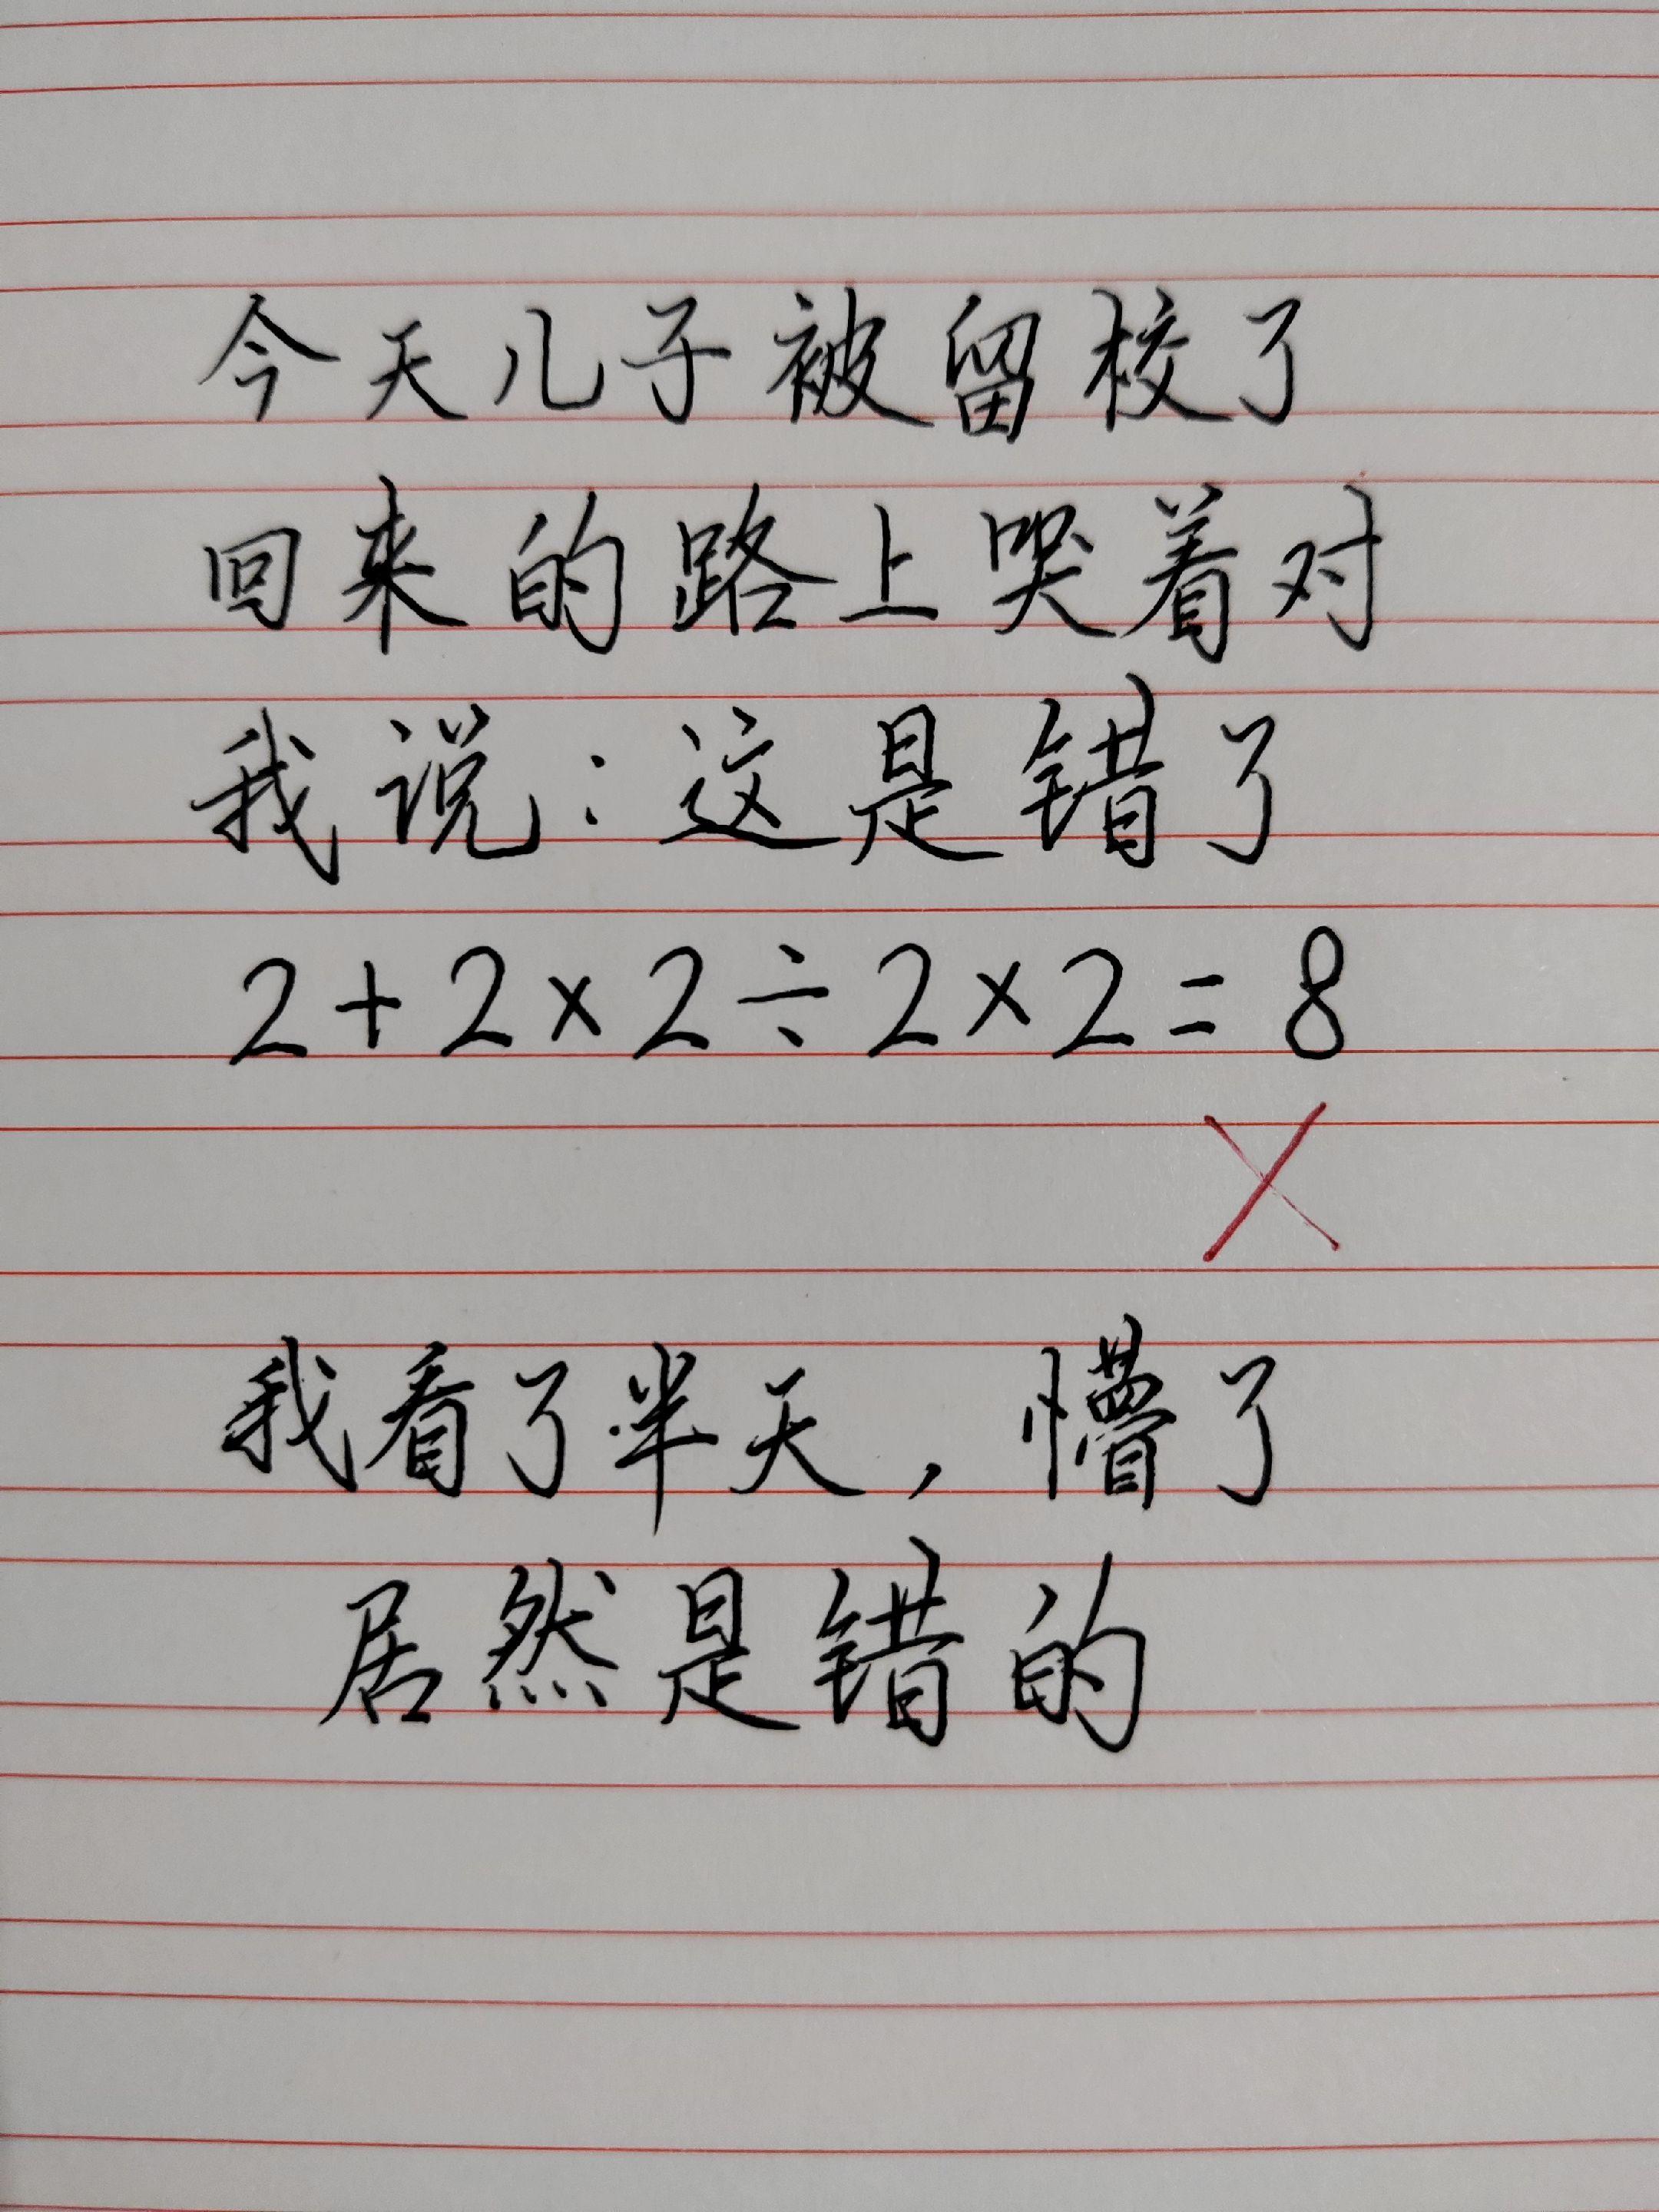 今天儿子被留校了
回来的路上哭着对
我说:这是错了
2+2×2÷2×2=8
×
我看了半天,懵了
居然是错的